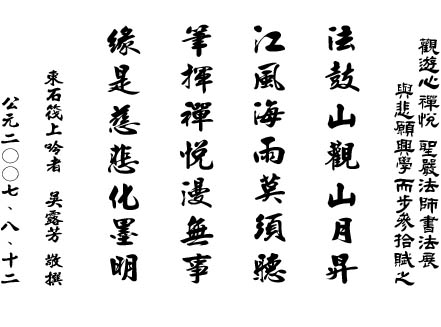 觀遊心禪悅 聖嚴法師書法展
與悲願興學而步參拾賦之
法鼓山觀山月昇
江風海雨莫須聽
筆揮禪悅漫無事
緣是慈悲化墨明
東石筏上吟者 吳露芳 敬撰
公元二〇〇七、八、十二